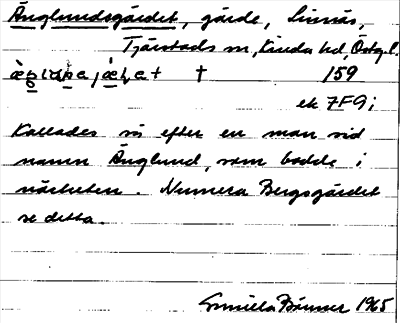 Änglundsgärdet, gärde, Linnäs,
Tjärstads sn, Kinda hd, Östg.l.
† 159
ek 7F9;
Kallades så efter en man vid
namn Änglund, som bodde i
närheten. Numera Bergsgärdet
se detta.
Gunilla 1965